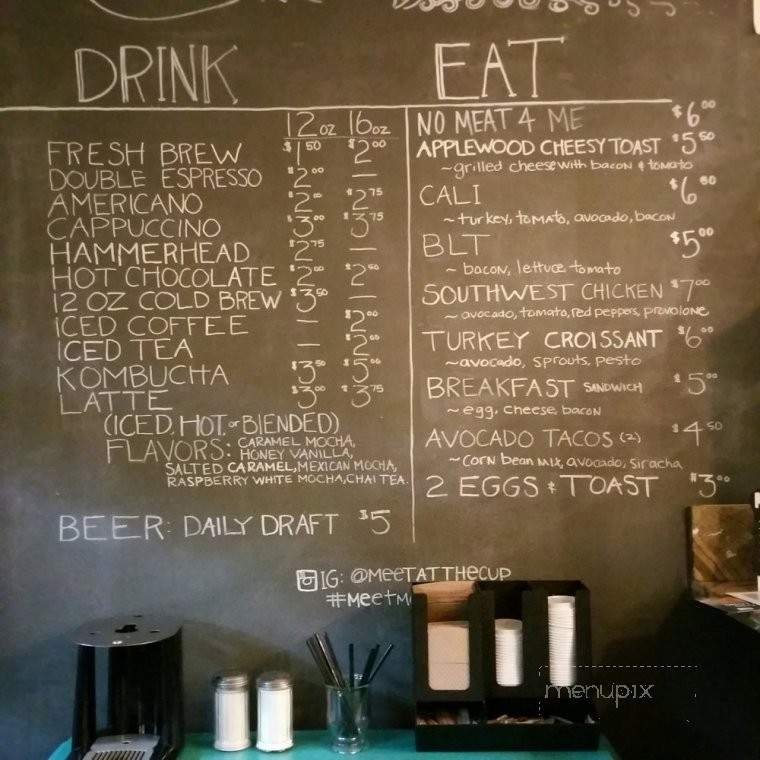 DRINK
12oz 16oz
FRESH BREW $1.50 $2.00
DOUBLE ESPRESSO $2.00 —
AMERICANO $2.00 $2.75
CAPPUCCINO $3.00 $3.75
HAMMERHEAD $2.75 —
HOT CHOCOLATE $2.00 $2.50
12 OZ COLD BREW $3.50 —
ICED COFFEE — $2.00
ICED TEA — $2.00
KOMBUCHA $3.50 $5.00
LATTE $3.00 $3.75
(ICED, HOT, or BLENDED)
FLAVORS: CARAMEL MOCHA,
HONEY VANILLA,
SALTED CARAMEL, MEXICAN MOCHA,
RASPBERRY WHITE MOCHA, CHAI TEA.
BEER: DAILY DRAFT $5
EAT
NO MEAT 4 ME $6.00
APPLEWOOD CHEESY TOAST $5.50
~grilled cheese with bacon & tomato
CALI $6.50
~turkey, tomato, avocado, bacon
BLT $5.00
~ bacon, lettuce, tomato
SOUTHWEST CHICKEN $7.00
~ avocado, tomato, red peppers, provolone
TURKEY CROISSANT $6.00
~avocado, sprouts, pesto
BREAKFAST SANDWICH $5.00
~egg, cheese, bacon
AVOCADO TACOS (2) $4.50
~corn bean mix, avocado, siracha
2 EGGS & TOAST $3.00
IG: @MEETATTHECUP
menupix